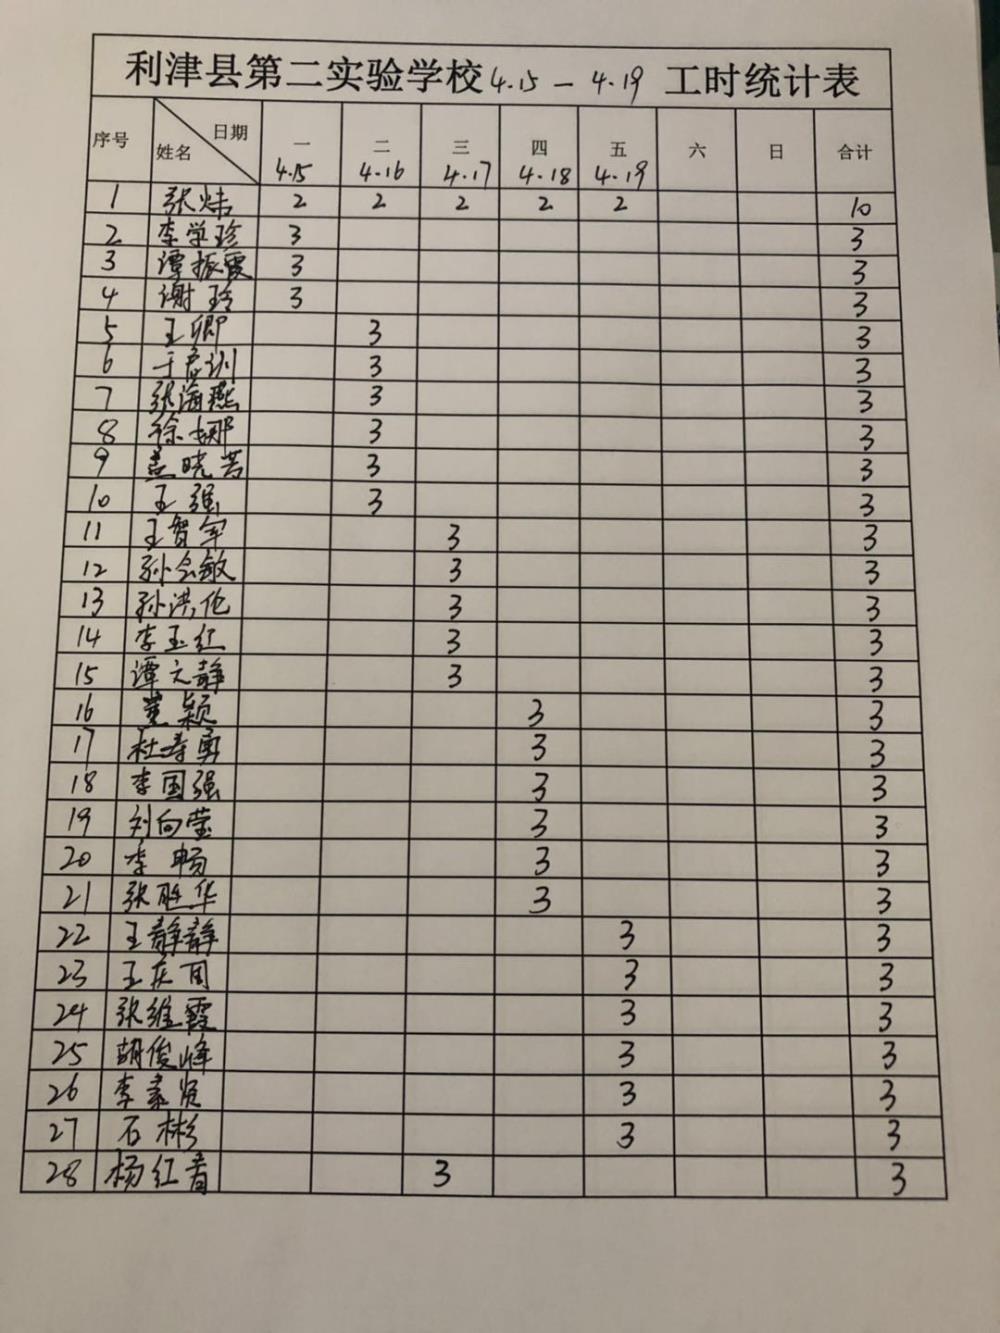 利津县第二实验学校4.15—4.19工时统计表
序号 日期 姓名 一 二 三 四 五 六 日 合计
4.15 4.16 4.17 4.18 4.19
1 张炜 2 2 2 2 2 10
2 李学珍 3 3
3 谭振霞 3 3
4 谢玲 3 3
5 王卿 3 3
6 于 训 3 3
7 张海燕 3 3
8 徐娜 3 3
9 盖晓芳 3 3
10 王强 3 3
11 王贺军 3 3
12 孙会敏 3 3
13 孙洪伦 3 3
14 李玉红 3 3
15 谭文静 3 3
16 董颖 3 3
17 杜寿勇 3 3
18 李国强 3 3
19 刘向莹 3 3
20 李畅 3 3
21 张胜华 3 3
22 王静静 3 3
23 王庆国 3 3
24 张维霞 3 3
25 胡俊峰 3 3
26 李素贤 3 3
27 石彬 3 3
28 杨红 3 3